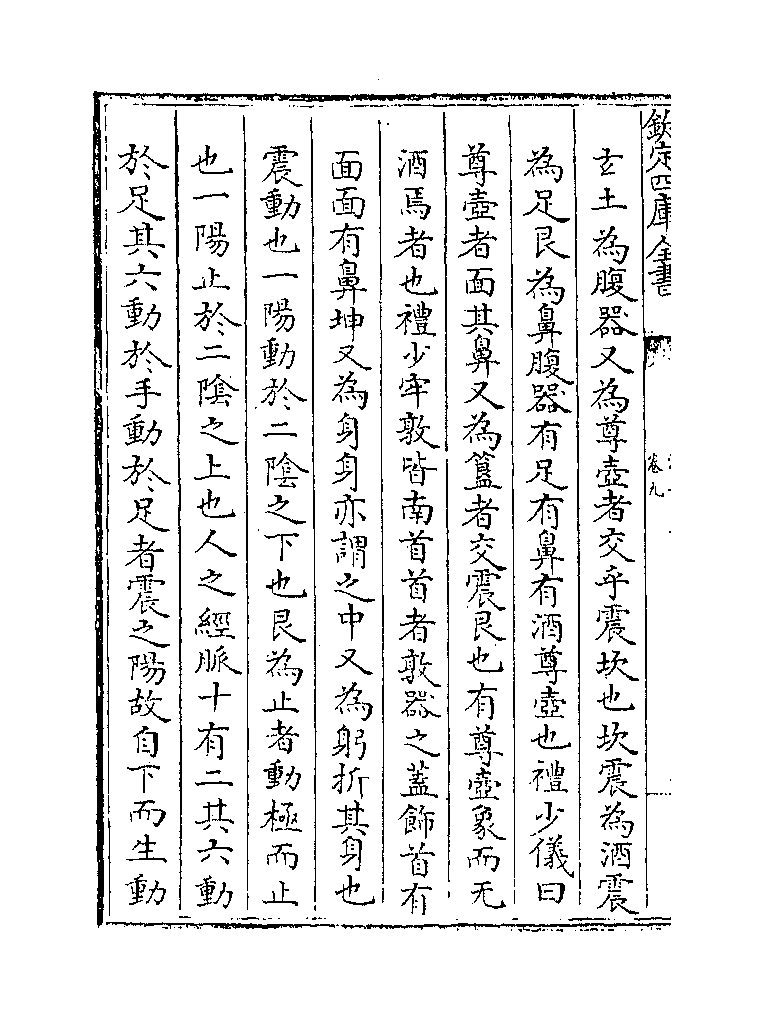 欽定四庫全書
卷九
𤣥土為腹器又為尊壺者交乎震坎也坎震為酒震
為足艮為鼻腹器有足有鼻有酒尊壺也禮少儀曰
尊壺者面其鼻又為簋者交震艮也有尊壺象而无
酒焉者也禮少牢敦皆南首首者敦器之蓋飾首有
面面有鼻坤又為身身亦謂之中又為躬折其身也
震動也一陽動於二陰之下也艮為止者動極而止
也一陽止於二陰之上也人之經脈十有二其六動
於足其六動於手動於足者震之陽故自下而生動